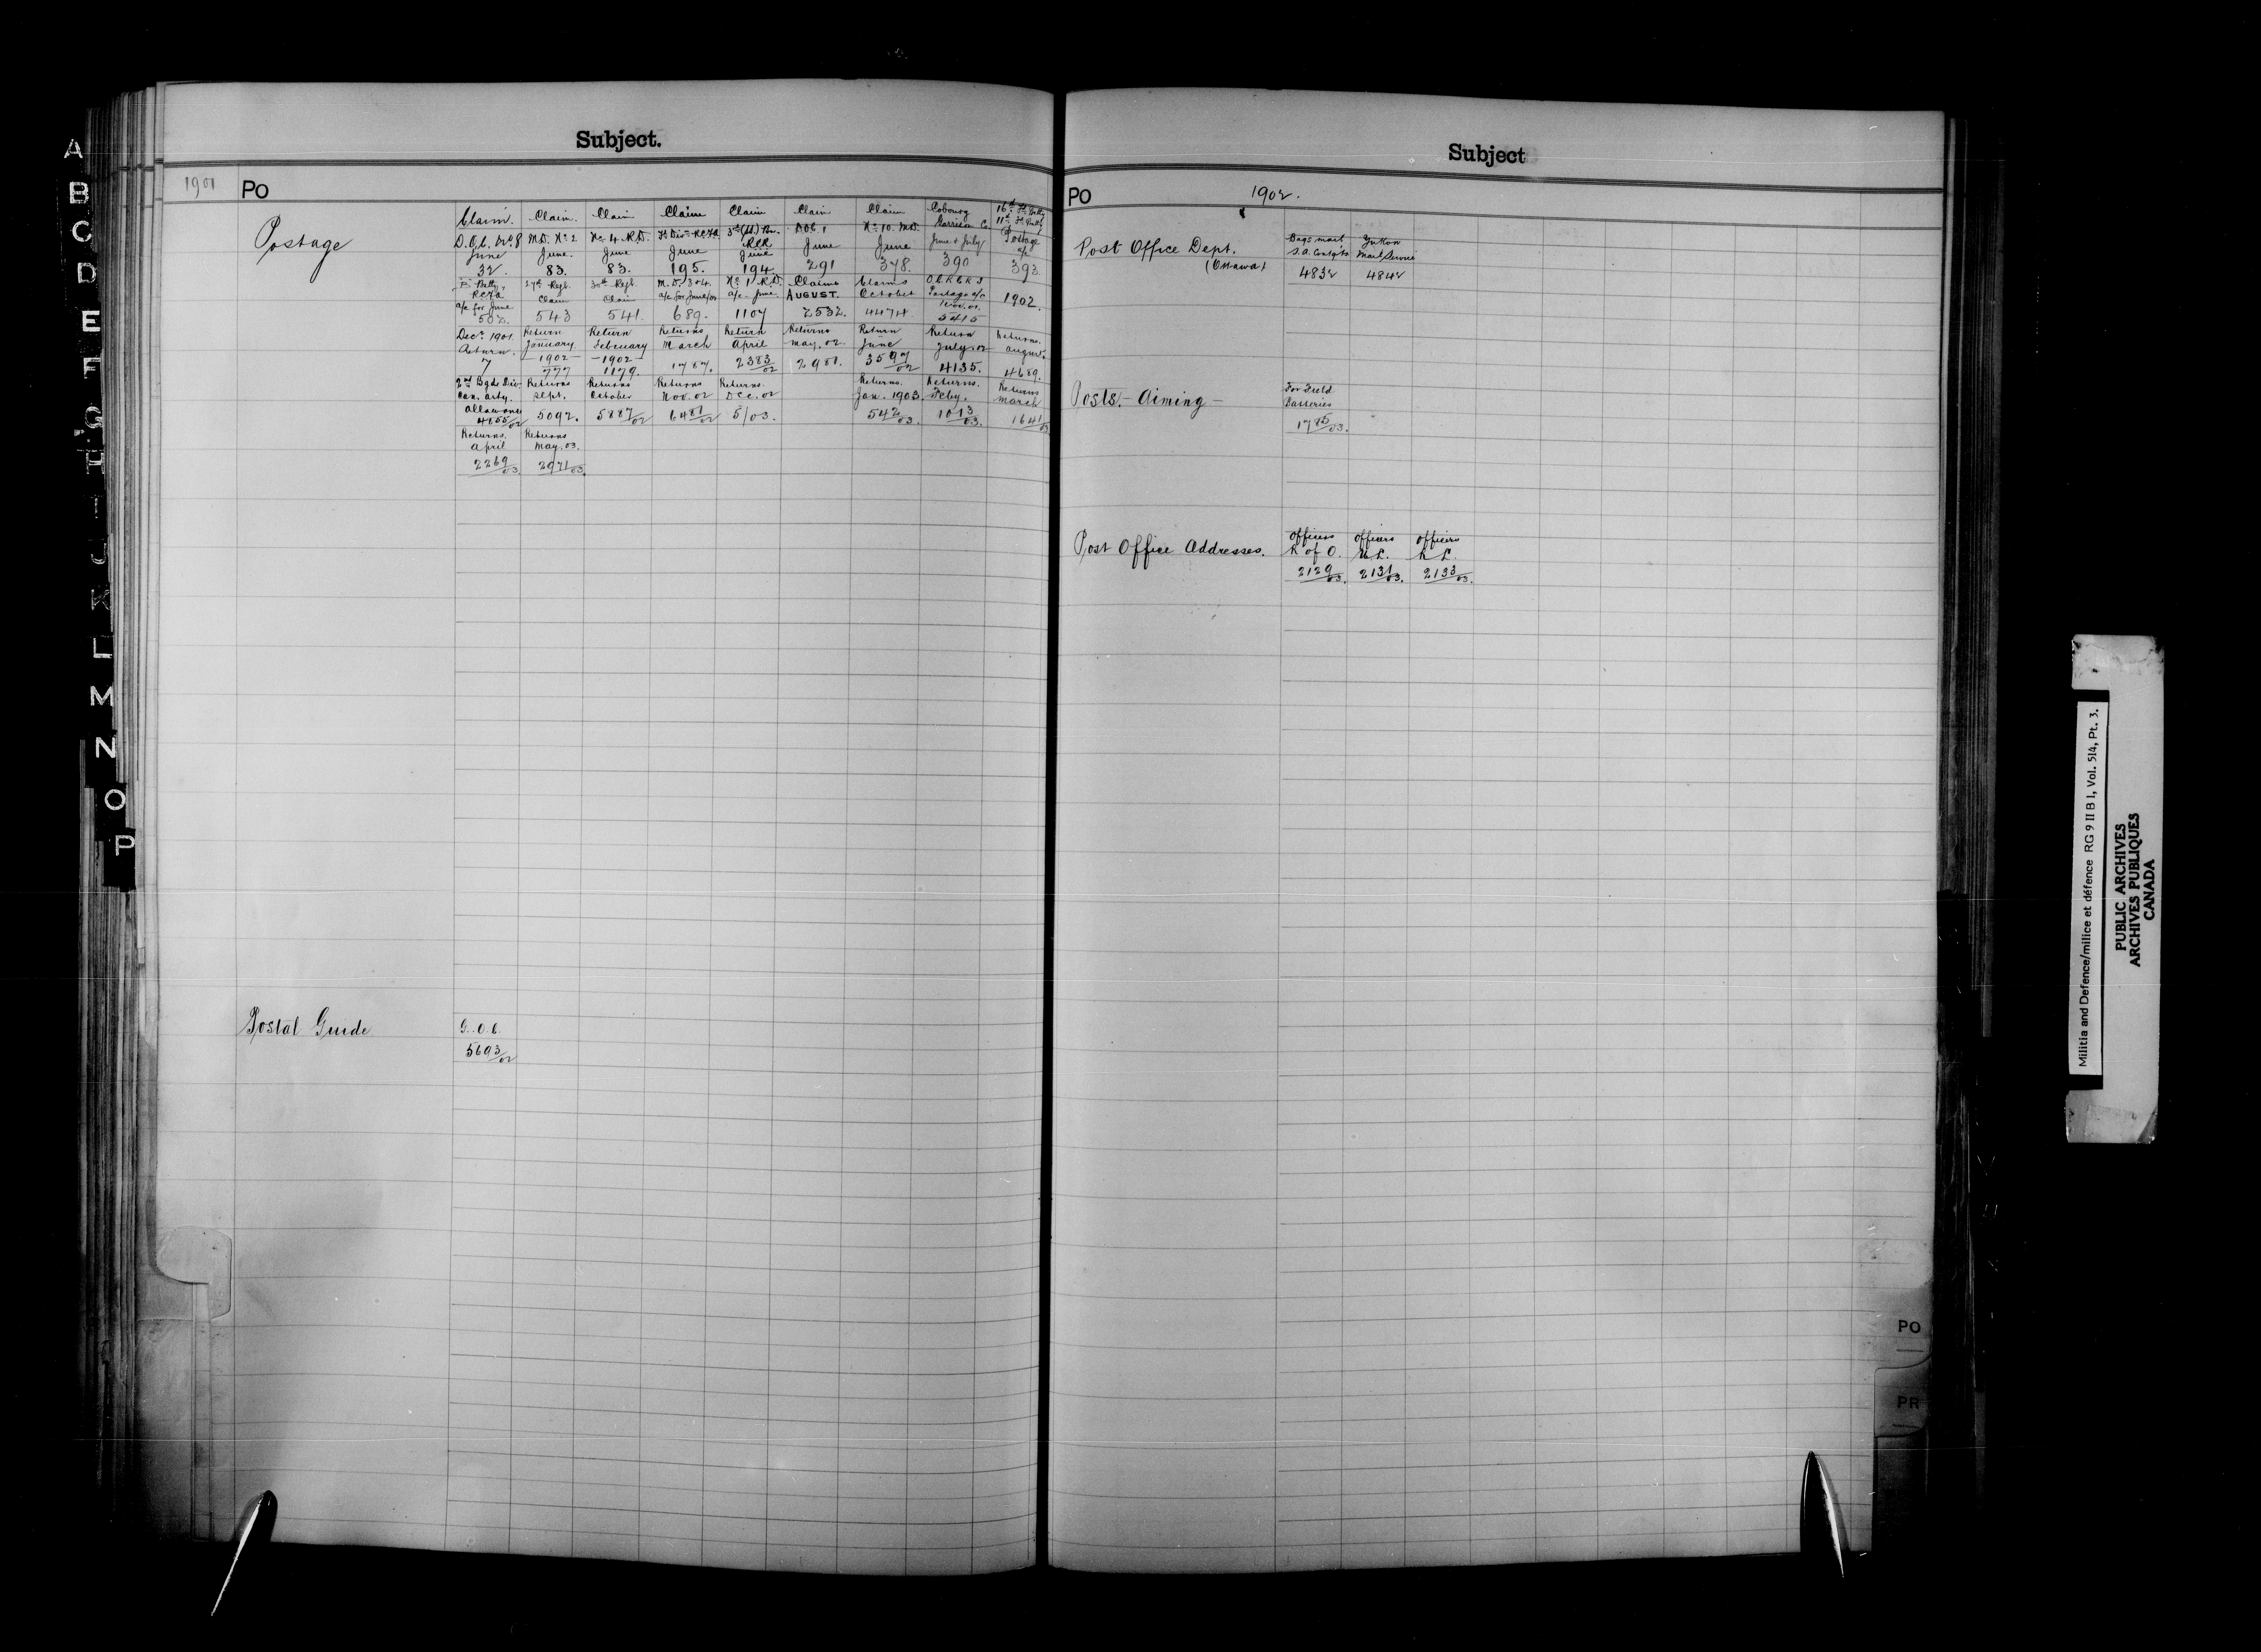 Subject.
1901 Po
Postage
Claim. Claim. Claim Claim Claim Claim Claim Cobourg 16th Fd Batty
D.O.C. No 8 M.D. No 2 No 4 R.D. Fd Div RCFA 3rd (S) Bn. D.O.C. 1 No 10. M.D. Garrison Co. 11th Fd Batty
June June. June June RCR June June June & July Postage
June a/c
32. 83. 83. 195. 194. 291 378. 390 393
Batty, 27th Regt. 30th Regt. M.D. 3 & 4. No 1 R.D. Claims Claims 1902.
RCFA Claim Claim a/c for June/01 a/c June. AUGUST. October Postage a/c
a/c for June Nov. 01.
502. 543 541. 689. 1107 2532. 4474. 5415
Decr 1901 Return Return Returns Return Returns Return Return Returns
Return. January February March April May, 02. June July, 02 August
1902 1902
7 777 1179. 1787. 2383/02 2981. 3597/02 4135. 4689.
2nd Bgde Div. Returns Returns Returns Returns. Returns. Returns. Returns
Can. Arty. Sept. October Nov. 02 Dec. 02 Jan. 1903 Feby. March
allowance
4855/02 5092. 5887/02 6481/02 5/03. 542/03. 1013/03. 1641/03
Returns. Returns
April May. 03.
2269/03. 2971/03.
Postal Guide G.O.C.
5693/02
Subject
PO 1902.
Post Office Dept. Bags mail Yukon
(Ottawa) S.A. Contgts Mail Service
4832 4842
Posts. - Aiming - For Field
Batteries
1785/03.
Post Office Addresses. Officers Officers Officers
R of O. U L. R L.
2129/03. 2131/03. 2133/03.
PO
PR
A
B
C
D
E
F
G
H
I
J
K
L
M
N
O
P
Militia and Defence/milice et défence RG 9 II B 1, Vol. 514, Pt. 3.
PUBLIC ARCHIVES
ARCHIVES PUBLIQUES
CANADA